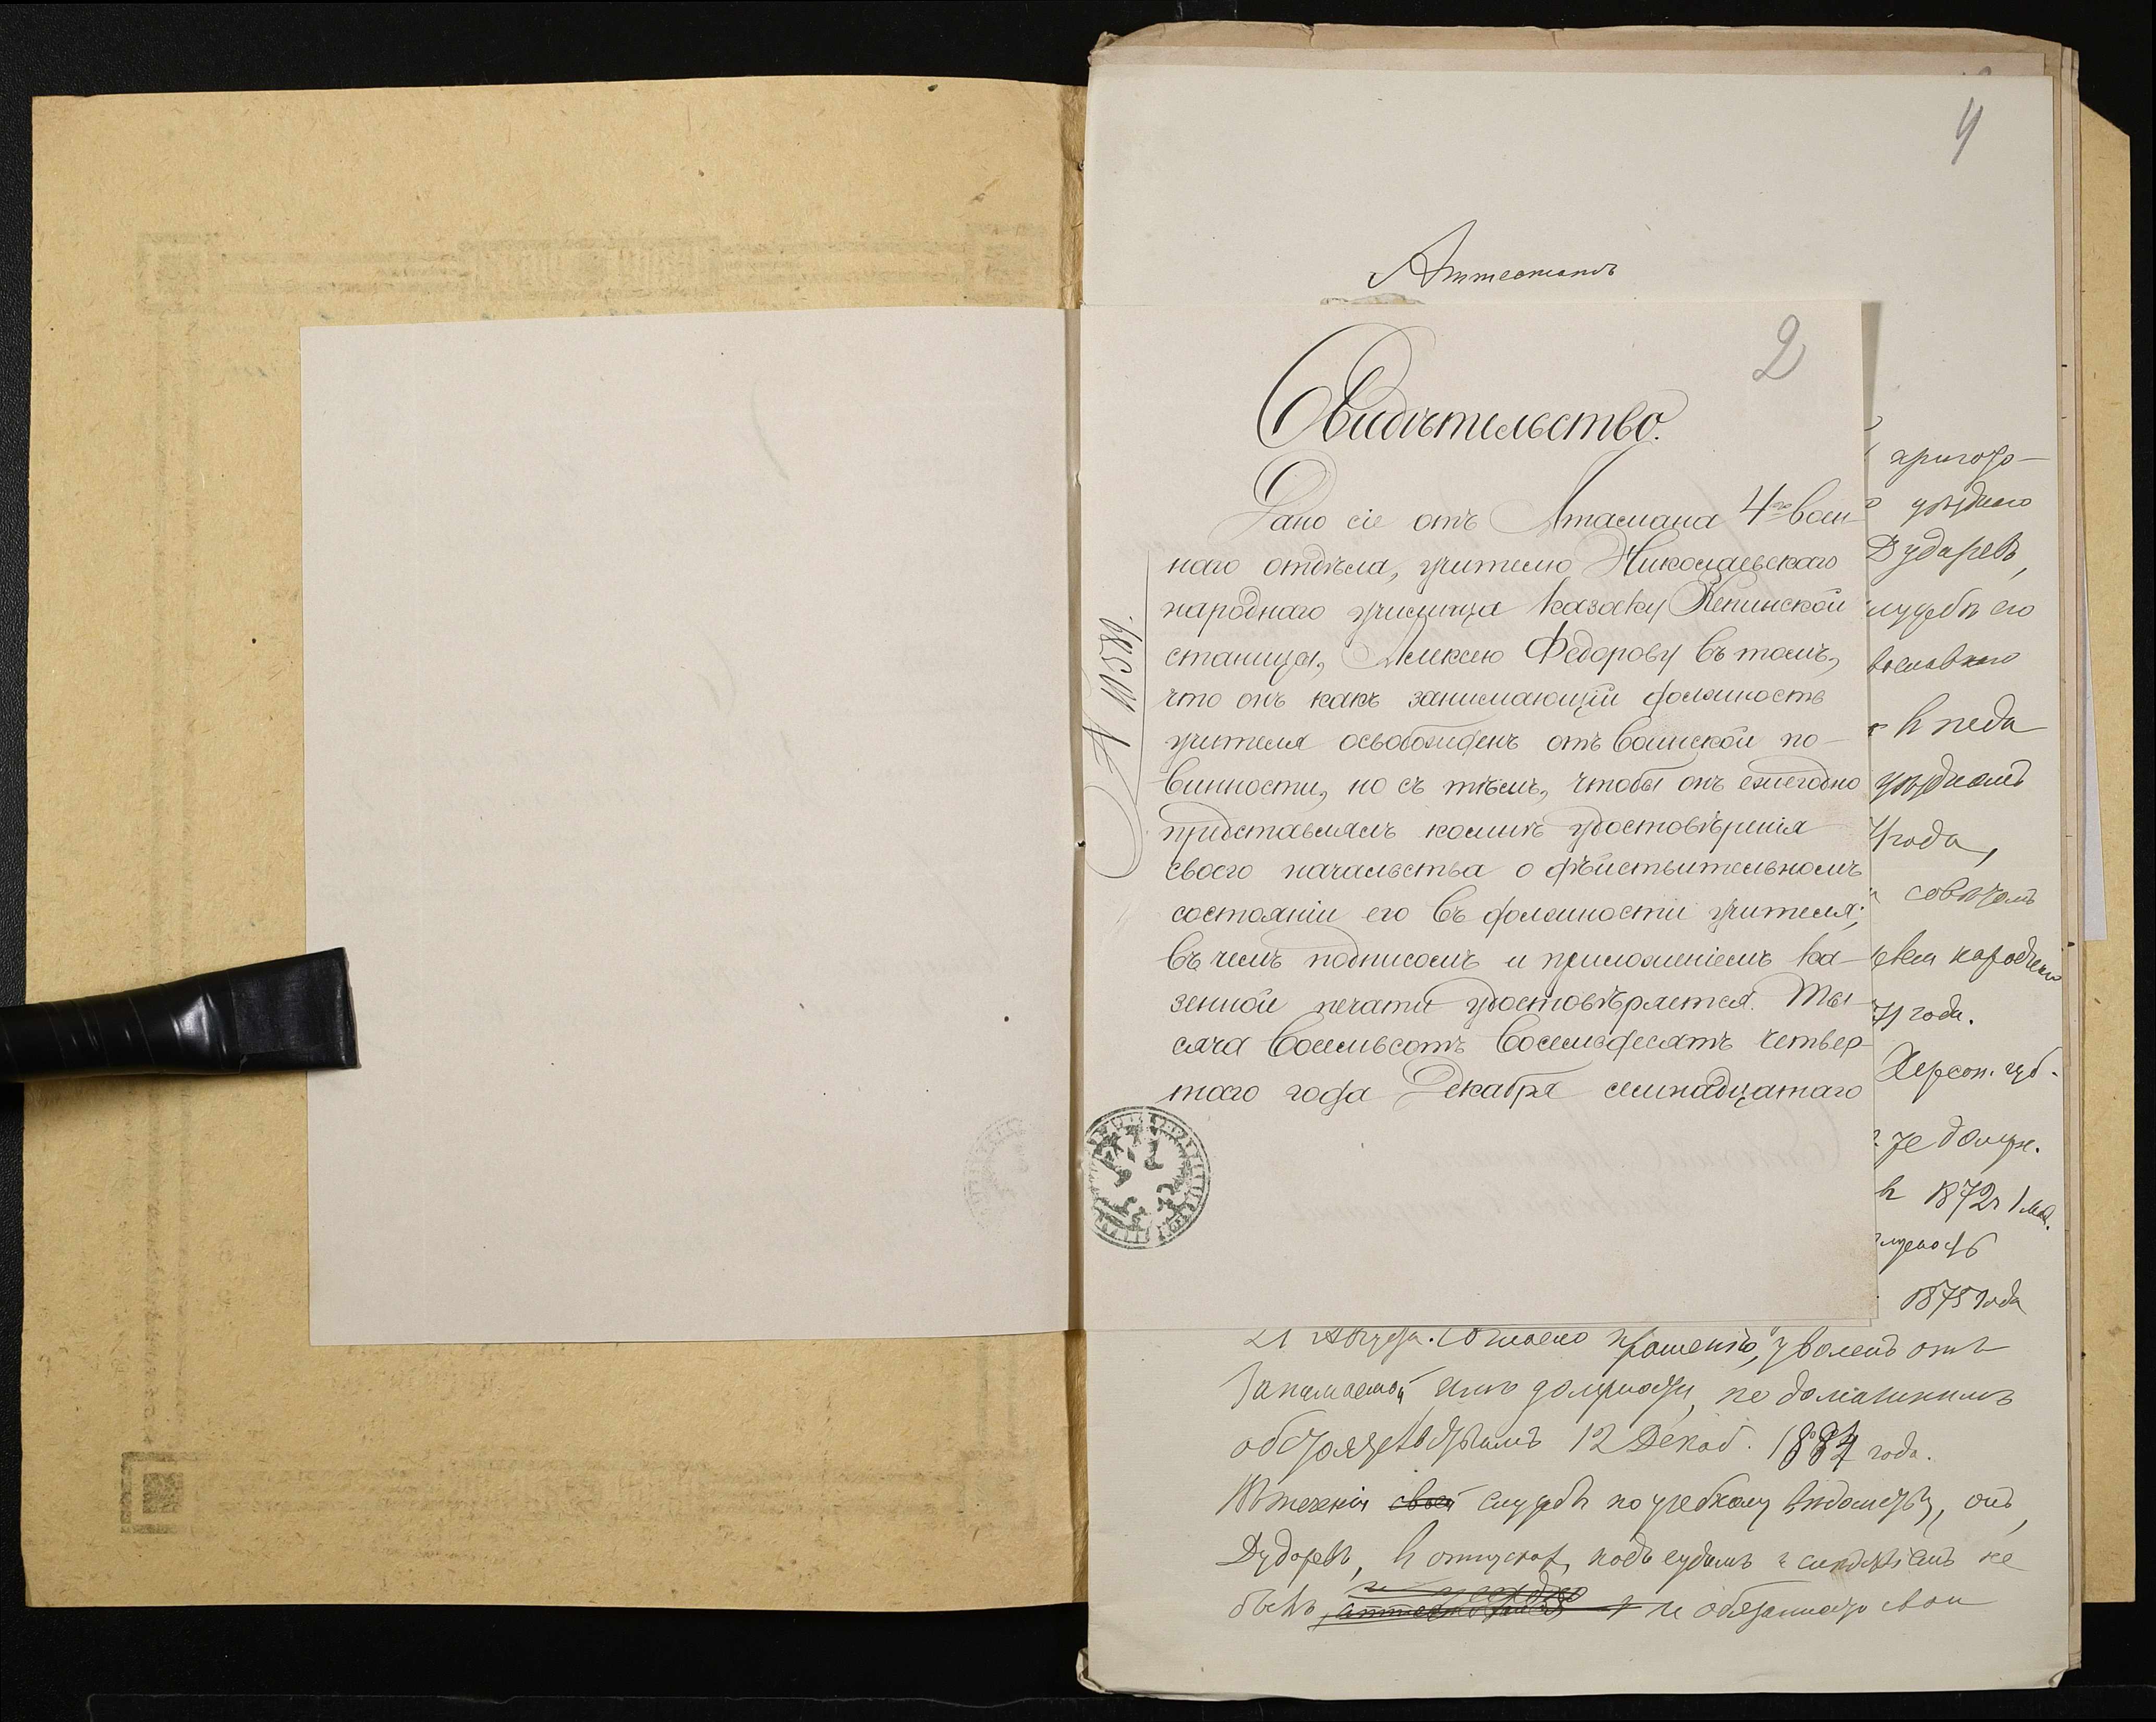 4
Аттестатъ
2
Свидѣтельство.
Дано сіе отъ Атамана 4го воен-
наго отдѣла, учителю Николаевскаго
народнаго училища казаку Кепинской
станицы, Алексею Федорову въ томъ,
что онъ какъ занимающій должность
учителя освобожденъ отъ воинской по-
винности, но съ тѣмъ, чтобы онъ ежегодно
представлялъ комнѣ удостовѣренія
своего начальства о дѣйствительномъ
состояніи его въ должности учителя;
въ чемъ подписомъ и приложеніемъ ка-
зенной печати удостовѣряется. Ты-
сяча восемьсотъ восемьдесятъ четвер-
таго года Декабря семнадцатаго
№ 10589.
приго
уѣзднаго
Дударевъ,
службѣ его
в педа
уѣздномъ
года,
совѣтомъ
71 года.
Херсон. губ.
же должн.
в 1872 г 1 мая.
1875 года
21 Августа. Согласно прошенію, уволенъ отъ
занимаемой имъ должности, по домашнимъ
обстоятельствамъ 12 Декаб. 1884 года.
Въ теченіи своей службѣ по учебному вѣдомству, онъ,
Дударевъ, в отпускахъ, подъ судомъ и слѣдствіемъ не
былъ и обязанности свои